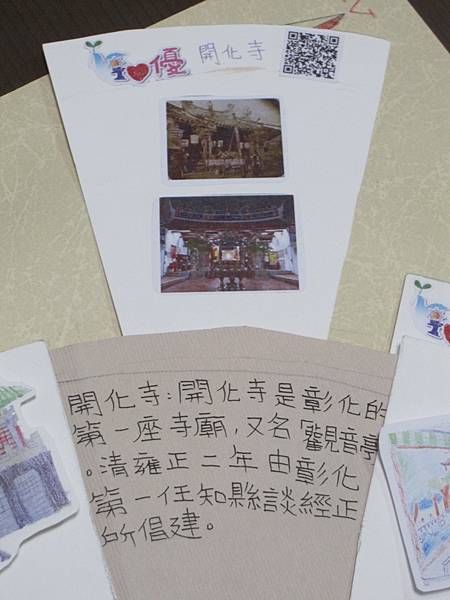 優 開化寺
開化寺:開化寺是彰化的
第一座寺廟,又名觀音亭
。清雍正二年由彰化
第一任知縣談經正
所倡建。